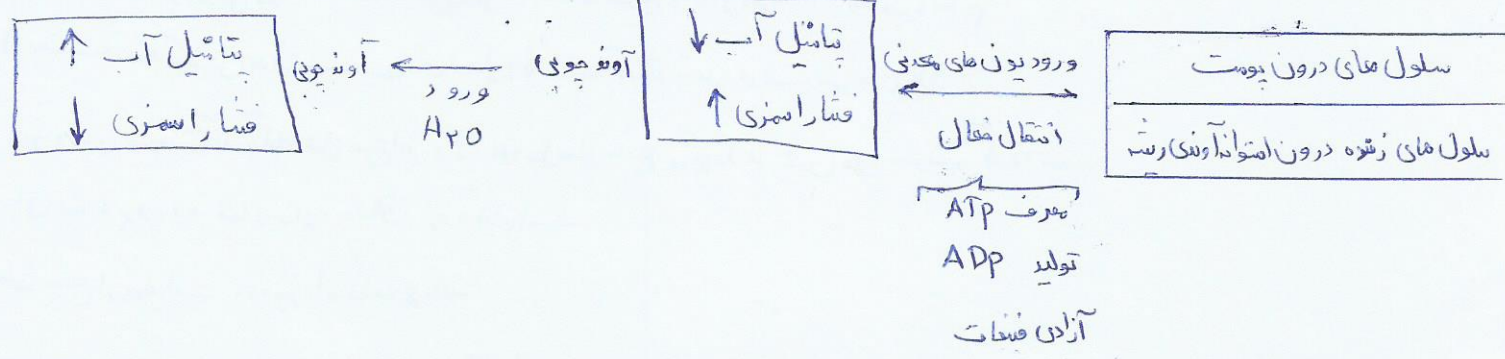 سلول های درون پوست
سلول های زنده درون استوانه آوندی ریشه
ورود یون های معدنی
انتقال فعال
مصرف ATP
تولید ADP
آزادی فسفات
پتانسیل آب ↓
فشار اسمزی ↑
آوند چوبی
ورود
H₂O
آوند چوبی
پتانسیل آب ↑
فشار اسمزی ↓